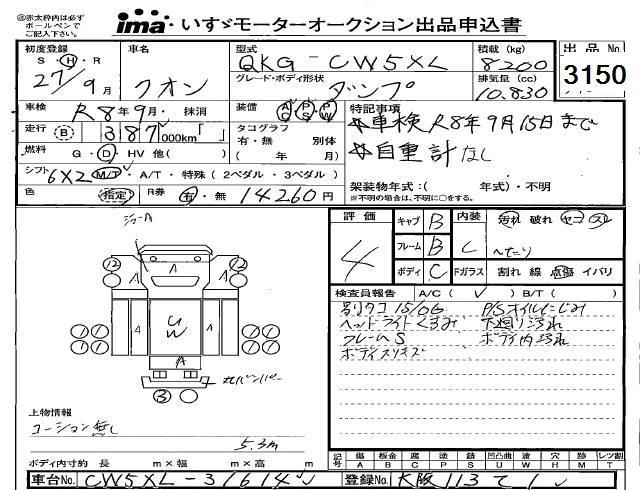 ㊟赤太枠内は必ず
ボールペンで
ご記入下さい。
ima いすゞモーターオークション出品申込書
初度登録 S・H・R 27年9月
車名 クオン
型式 QKG-CW5XL
グレード・ボディ形状 ダンプ
積載 (kg) 8200
排気量 (cc) 10.830
出品No 3150
車検 R8年9月・抹消
装備 AC・PS・PW
特記事項
☆車検R8年9月15日まで
☆自重計なし
走行 (B) 387,000km「 」
タコグラフ 有・無 別体
( 年 月)
燃料 G・D・HV 他( )
シフト 6X2 M/T・A/T・特殊(2ペダル・3ペダル)
色 指定 R券 有・無 14260円
架装物年式:( 年式)・不明
※不明の場合は、不明に○をする。
評価 4
キャブ B 内装 汚れ 破れ ヤニ スレ
フレーム B C へたり
ボディ C Fガラス 割れ 線 点傷 イバリ
検査員報告 A/C( ✓ ) B/T( )
別タコ15/06 P/Sオイルにじみ
ヘッドライトくすみ、下廻り汚れ
フレームS ボディ内汚れ
ボディスリキズ
A
12 A 12
A A A
UW
A
3
上物情報
コーション無し
5.3m
ボディ内寸約 長 m×幅 m×高 m
記号 傷A 板金B 腐C 塗P 鉄S 凹凸曲U 波W 穴H 痔M レツ割T
車台No. CW5XL-31614✓
登録No. 大阪113て1✓